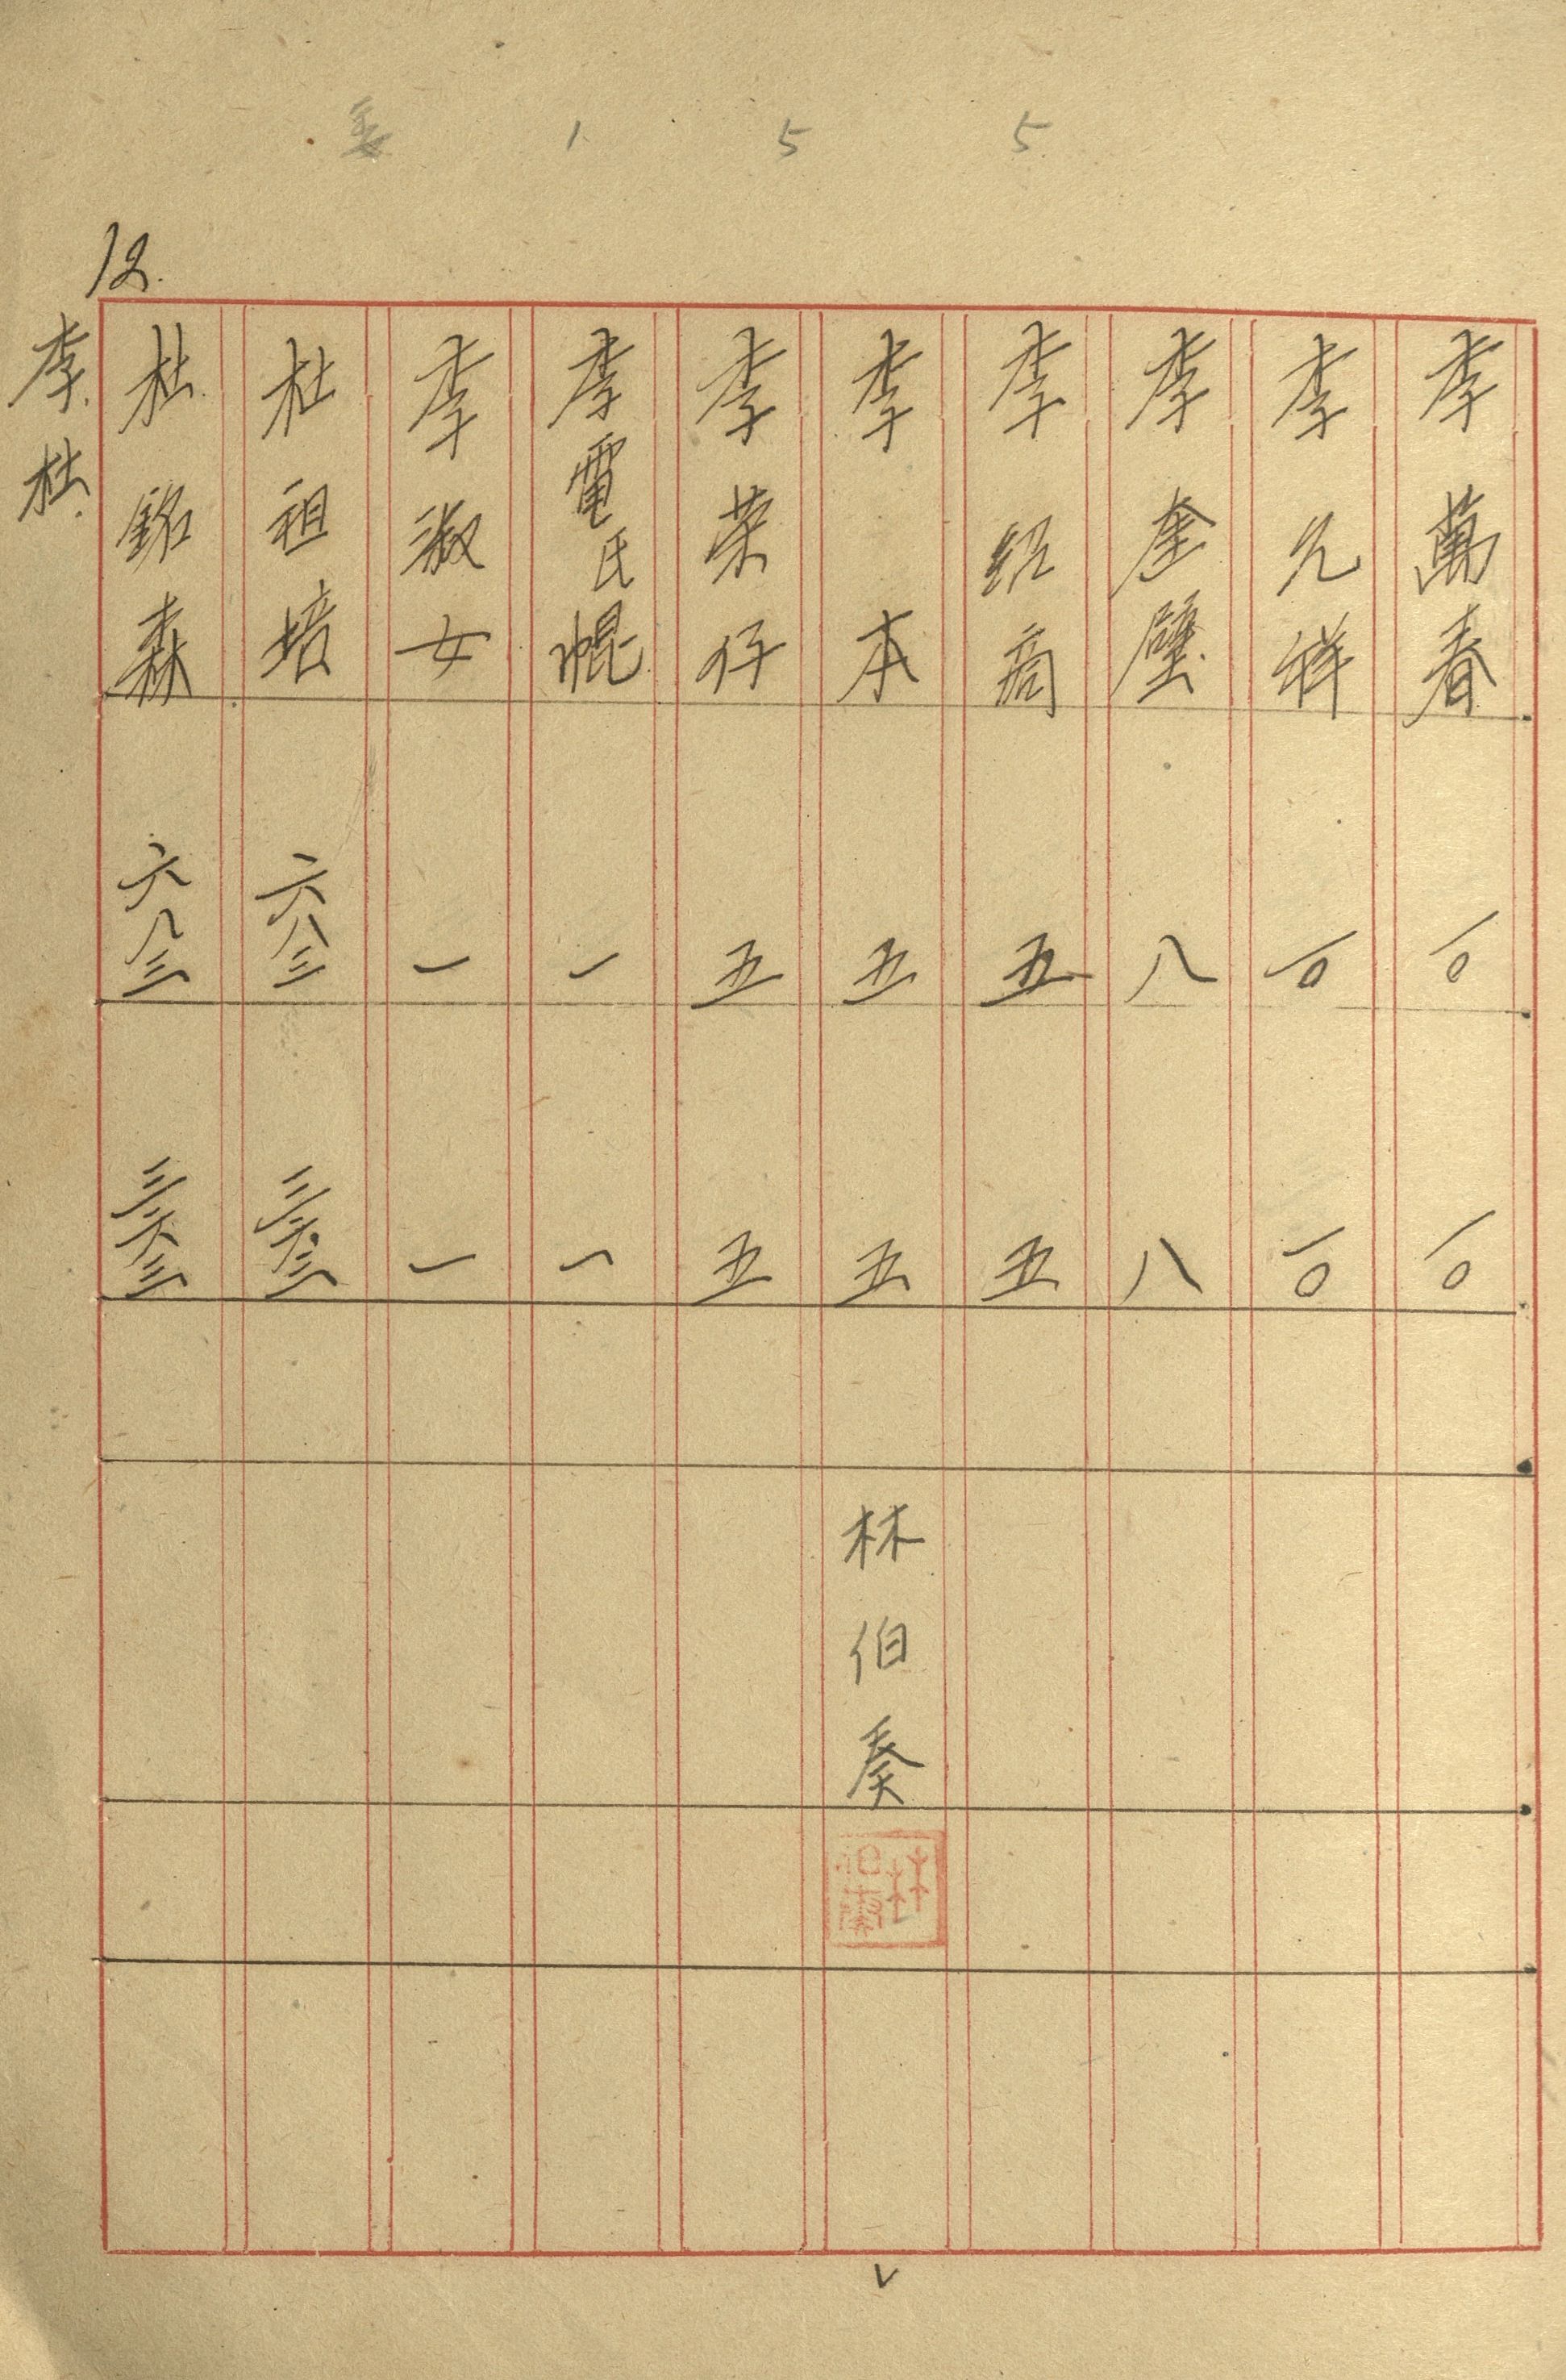 1 5 5
12.
李萬春 一〇 一〇
李元祥 一〇 一〇
李奎璧 八 八
李紹商 五 五
李本 五 五 林伯奏
李荣仔 五 五
李電氏 一 一
李淑女 一 一
杜祖培 六八三 三六三
杜銘森 六八三 三六三
李.杜.